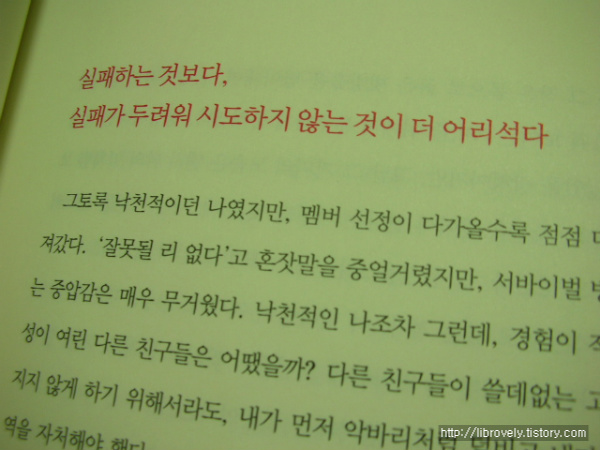 실패하는 것보다,
실패가 두려워 시도하지 않는 것이 더 어리석다
그토록 낙천적이던 나였지만, 멤버 선정이 다가올수록 점점
져갔다. ‘잘못될 리 없다’고 혼잣말을 중얼거렸지만, 서바이벌
는 중압감은 매우 무거웠다. 낙천적인 나조차 그런데, 경험이
성이 여린 다른 친구들은 어땠을까? 다른 친구들이 쓸데없는 고
지지 않게 하기 위해서라도, 내가 먼저 악바리처럼
역을 자처해야 했다
http://librovely.tistory.com